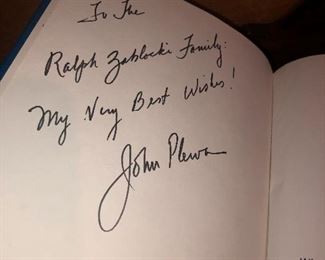 To The
Ralph Zablocki Family:
My Very Best Wishes!
John Plewa